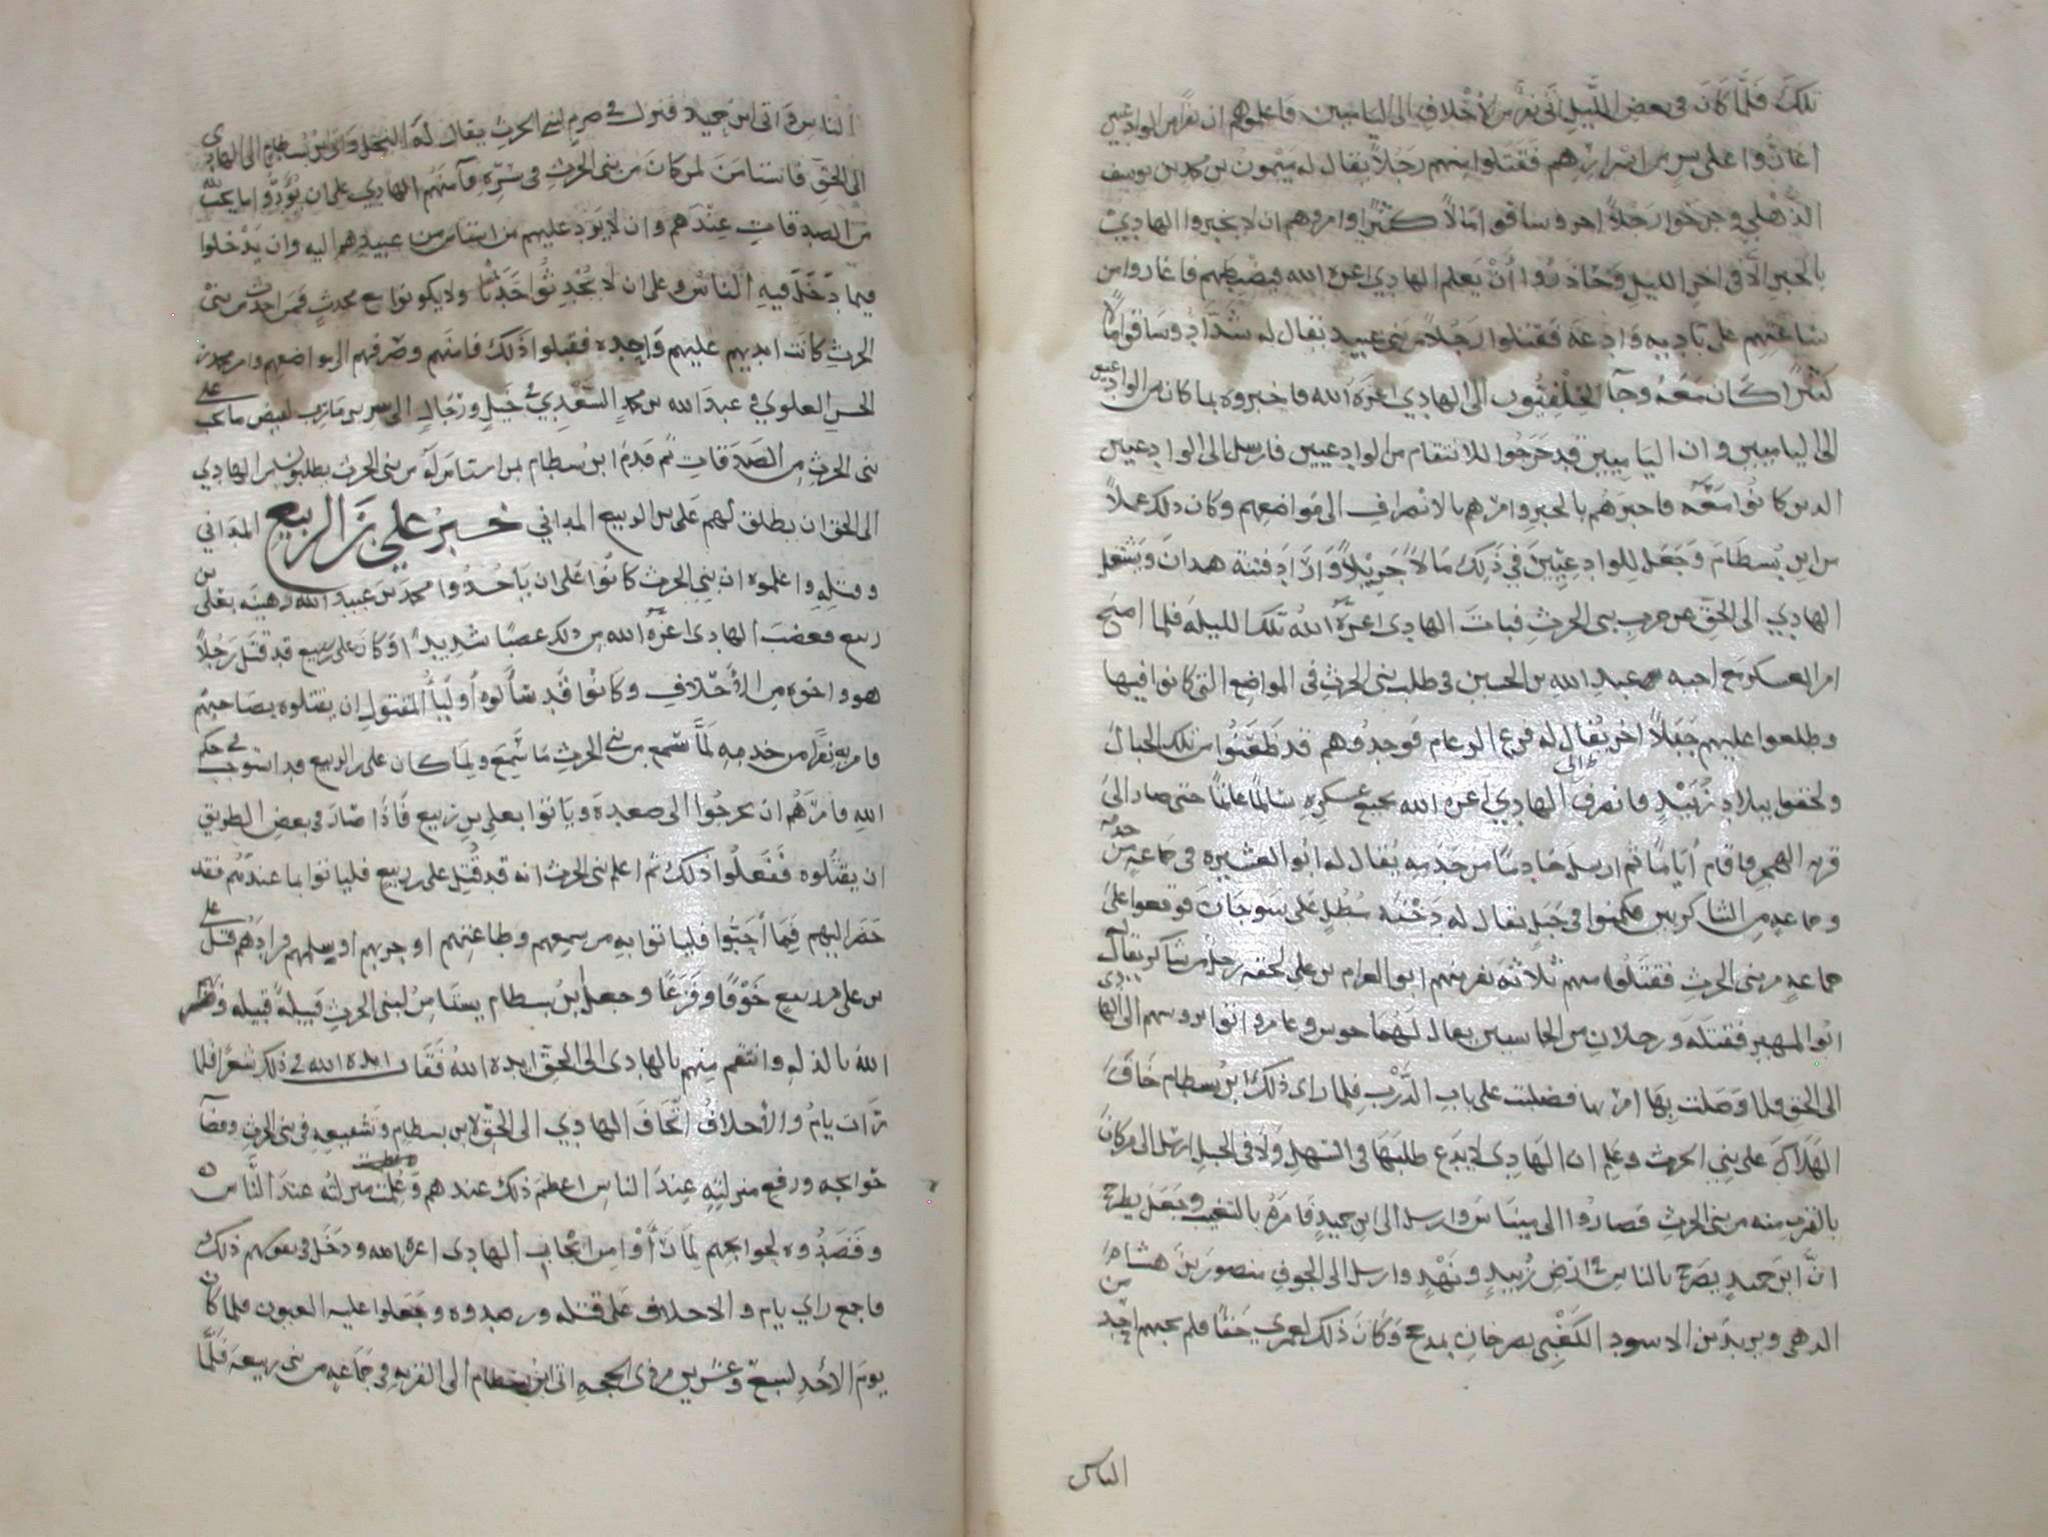 تلك فلما كان في بعض الليل اتى نفر من الأحلاف الى اليامبين فاعلموهم ان نفرا من الوادعيين
اغاروا على بين من اشرارهم فقتلوا منهم رجلا يقال له ميمون بن محمد بن يوسف
الذهلي وجرحوا رجلا اخر وساقوا امالا كثيرا وامروهم ان لا يخبروا الهادي
بالخبر الا في اخر الليل وحاذروا أن يعلم الهادي اعزه الله فيضبطهم فاغاروا من
ساعتهم على بادية وادعة فقتلوا رجلا من بني عبيد يقال له شداد وساقوا مالا
كثيرا كان معه وجآ الحلفيون الى الهادي اعزه الله فاخبروه بما كان من الوادعيين
الى اليامبين وان اليامبين قد خرجوا للانتقام من الوادعيين فارسل الى الوادعيين
الذين كانوا معه فاخبرهم بالخبر وامرهم بالانصراف الى مواضعهم وكان ذلك عملا
من ابن بسطام وجعل للوادعيين في ذلك مالا جزيلا واراد فتنة همدان ويشغل
الهادي الى الحق عن حرب بني الحرث فبات الهادي اعزه الله تلك الليلة فلما اصبح
امر العسكر مع اخيه عبد الله بن الحسين في طلب بني الحرث في المواضع التي كانوا فيها
وطلعوا عليهم جبلا اخر يقال له فرع الوعام فوجدوهم قد ظعنوا من تلك الجبال
ولحقوا ببلاد زبيد فانصرف الهادي الى اعزه الله بجميع عسكره سالما غانما حتى صار الى
قرية الهجر فاقام أياما ثم ارسل خادما من خدمه يقال له ابو العشيرة في جماعة من خدمه
وجماعة من الشاكريين فكمنوا في جبل يقال له على سوحان فوقعوا على
جماعة من بني الحرث فقتلوا منهم ثلاثة نفر منهم ابو العرام بن علي لحقه رجل من شاكر يقال له
ابو المهير فقتله ورجلان من الحماسيين يقال لهما حوس وعامر واتوا بروسهم الى الهادي
الى الحق فلما وصلت بها امر بها فصلبت على باب الدرب فلما راى ذلك ابن بسطام خاف
الهلاك على بني الحرث وعلم ان الهادي لا يدع طلبها في السهل ولا في الجبل ارسل الى من كان
بالقرب منه من بني الحرث فصاروا الى ميناس وارسل الى ابن حميد فامره بالتغيب وجعل يطرح
ان ابن حميد يصرح بالناس في ارض زبيد ونهد وارسل الى الجوف منصور بن هشام
الدهمي ويزيد بن الاسود الكعبي يصرخان بمذحج وكان ذلك لعمري حقا فلم يجبهم احد من
الناس
الناس واتى ابن حميد فنزل في صرم لبني الحرث يقال له النخل واتى ابن بسطام الى الهادي
الى الحق فاستامن لمن كان من بني الحرث في سره فآمنهم الهادي على ان يؤدوا ما يجب لله
من الصدقات عندهم وان لا يرد عليهم من استامن من عبيدهم اليه وان يدخلوا
فيما دخل فيه الناس وعلى ان لا يحدثوا حدثا ولا يكونوا مع محدث فمن احدث من بني
الحرث كانت ايديهم عليهم واحدة فقبلوا ذلك فامنهم وصرفهم الى مواضعهم وامر محمد بن
الحسن العلوي في عبد الله بن محمد السعدي في خيل ورجال الى مارب لقبض ما يجب على
بني الحرث من الصدقات ثم قدم ابن بسطام بمن استامن له من بني الحرث يطلبون من الهادي
الى الحق ان يطلق لهم علي بن الربيع المداني خبر علي بن الربيع المداني
وقتله واعلموه ان بني الحرث كانوا على ان ياخذوا محمد بن عبيد الله رهينه بعلي بن
ربيع فغضب الهادي اعزه الله من ذلك غضبا شديدا وكان علي بن ربيع قد قتل رجلا
هو واخوه من الأحلاف وكانوا قد سألوه أوليآ المقتول ان يقتلوه بصاحبهم
فامر به نفرا من خدمه لما سمع من بني الحرث ما سمع ولما كان علي بن الربيع قد استوجب في حكم
الله فامرهم ان يخرجوا الى صعدة وياتوا بعلي بن ربيع فاذا صار في بعض الطريق
ان يقتلوه ففعلوا ذلك ثم اعلم بني الحرث انه قد قتل علي بن ربيع فلياتوا بما عندهم فقد
حضر اليهم فما أحبوا فلياتوا به من سمعهم وطاعتهم او حربهم او سلمهم فزادهم قتل علي
بن علي بن ربيع خوفا وفزعا وجعل ابن بسطام يستامن لبني الحرث قبيلة قبيلة وظفر
الله بالذلة وانتقم منهم بالهادي الى الحق ايده الله فقال ايده الله في ذلك شعرا فلما
رات يام والأحلاف اتحاف الهادي الى الحق لابن بسطام وتشفيعه في بني الحرث وقضآ
حوائجه ورفع منزلته عند الناس اعظم ذلك عندهم وعلت منزلته عند الناس
وقصدوه لحوائجهم لما رأوا من اتحاف الهادي اعزه الله ودخل في نفوسهم ذلك
فاجمع راي يام والاحلاف على قتله ورصدوه وجعلوا عليه العيون فلما كان
يوم الأحد لسبع وعشرين من ذي الحجه اتى ابن بسطام الى القرية في جماعة من بني ربيعة فلما